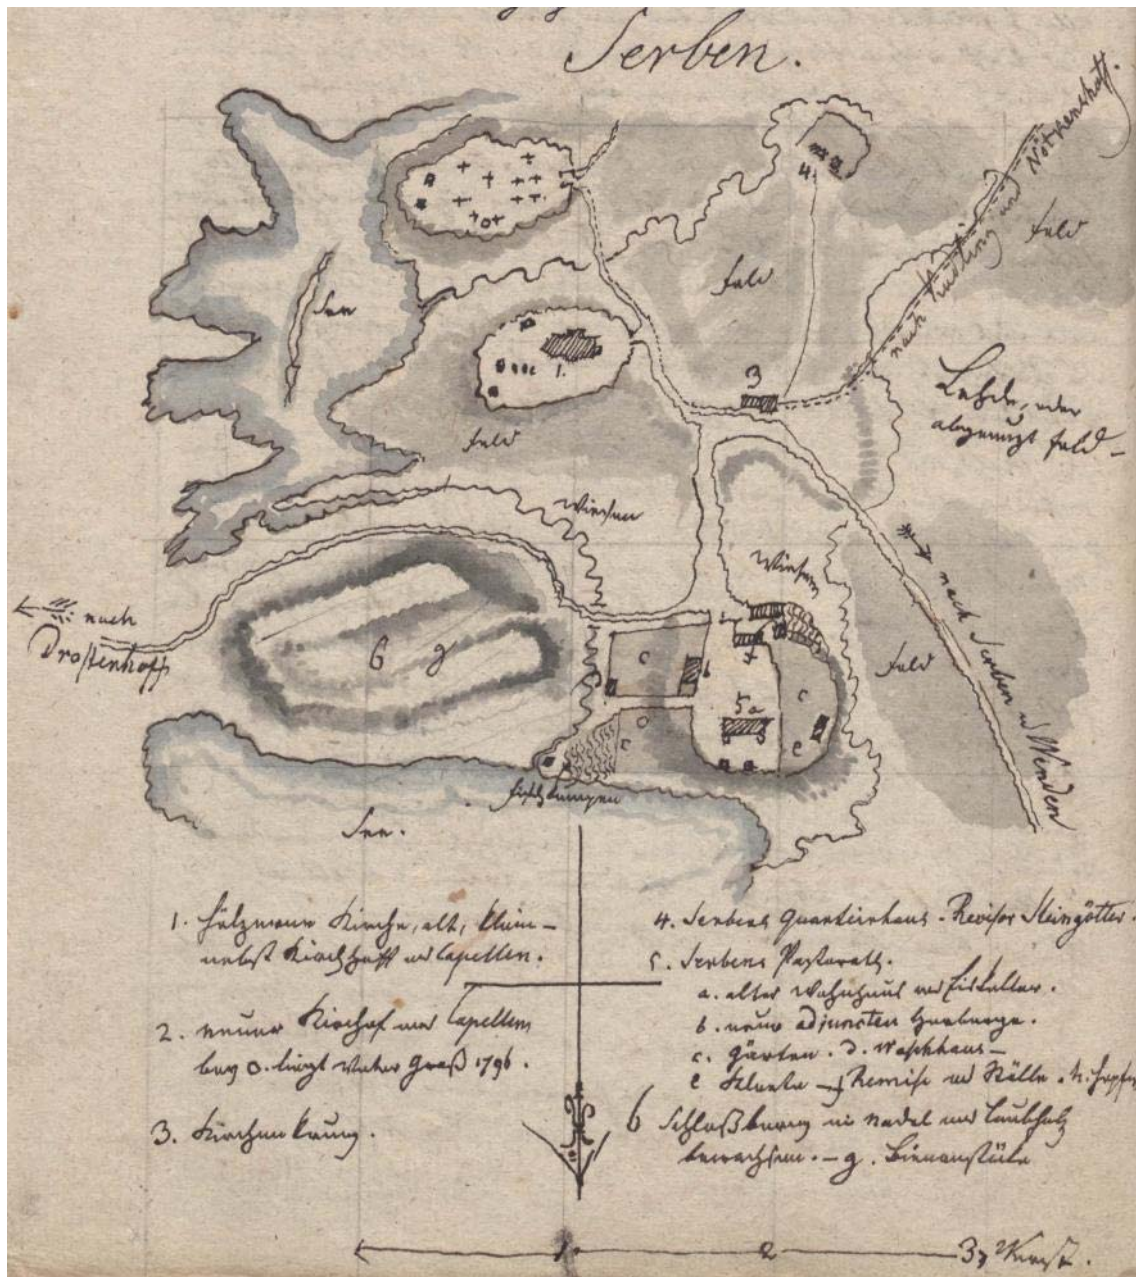 Serben.
nach Nudling und Nötkenshoff.
4.
Feld
Feld
See
3
1.
Lehde, oder
abgenutzt Feld –
Feld
Wiesen
Wiesen
nach
Drostenhoff
nach Serben u Wenden
6 g
c
b
5a
c
e
c
Feld
See.
1. Hölzerne Kirche, alt, klein –
nebst Kirchhoff und Capellen.
2. neuer Kirchhof und Capellen
bey o. liegt Vater Graß 1796.
3. Kirchen Krug.
4. Serbens Quartierhaus – Revisor Steingötter.
5. Serbens Pastorath.
a. altes Wohnhaus und Eiskeller.
b. neue adjuncten Herberge.
c. Gärten. d. Waschhaus –
e Kleete – f Remise und Ställe. h. Hopfen
6 Schloßberg mit Nadel und Laubholz
bewachsen. – g. Bienenstöcke
1 2 3 Werst.